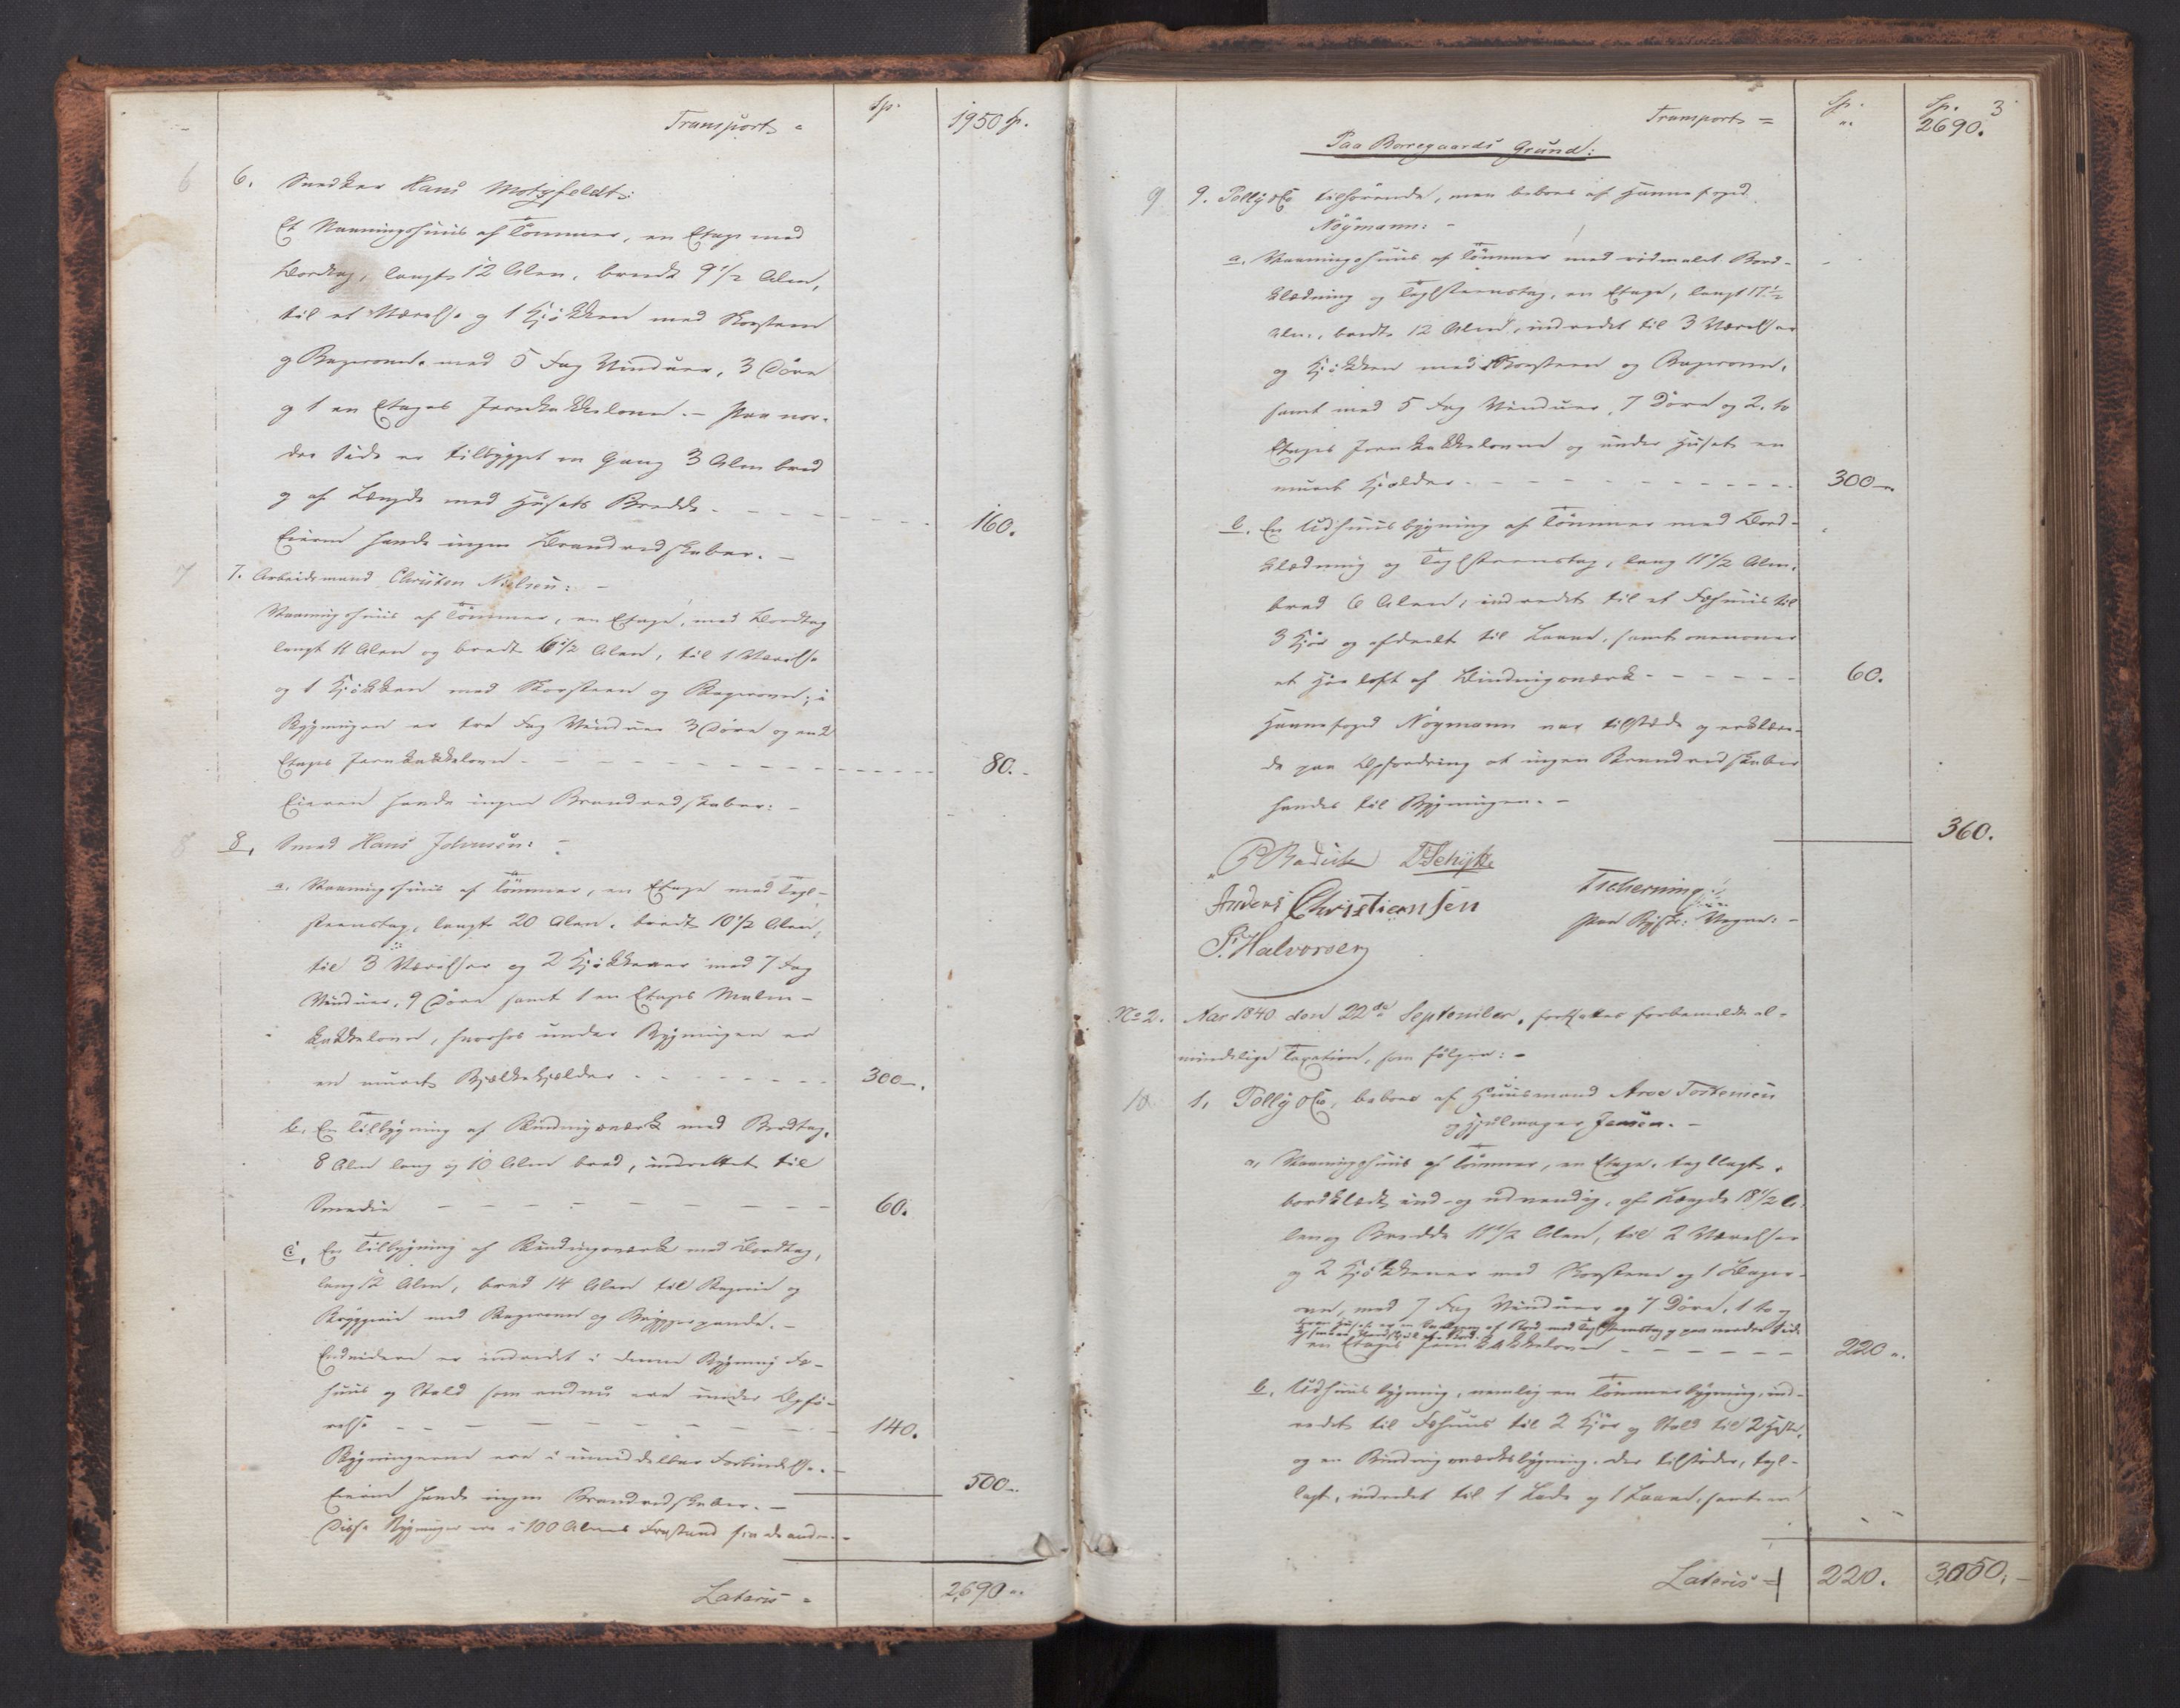 Transport =
Sp.
1950 sp.
6
6. Snedker Hans Motzfeldt:
Et Vaaningshuus af Tömmer, en Etage med
Bordtag, langt 12 Alen, bredt 9 1/2 Alen,
til et Værelse og 1 Kjökken med Skorsteen
og Bagerovn, med 5 Fag Vinduer, 3 Döre
og 1 en Etages Jernkakkelovn. – Paa nor-
dre Side er tilbygget en Gang 3 Alen bred
og af Længde med Husets Bredde - - - 160.
Eieren havde ingen Brandredskaber. –
7
7. Arbeidsmand Christen Nielsen: –
Vaaningshuus af Tömmer, en Etage, med Bordtag
langt 11 Alen og bredt 6 1/2 Alen, til 1 Værelse
og 1 Kjökken med Skorsteen og Bagerovn; i
Bygningen er tre Fag Vinduer 3 Döre og en 2
Etages Jernkakkelovn - - - 80. -
Eieren havde ingen Brandredskaber: –
8
8. Smed Hans Johnsen: –
a. Vaaningshuus af Tömmer, en Etage med Tegl-
steenstag, langt 20 Alen, bredt 10 1/2 Alen,
til 3 Værelser og 2 Kjökkener med 7 Fag
Vinduer, 9 Döre samt 1 en Etages Malm-
kakkelovn, hvorhos under Bygningen er
en muret Bjelkekjelder - - - 300 –.
b. En Tilbygning af Bindingsværk med Bordtag,
8 Alen lang og 10 Alen bred, indrettet til
Smedie - - - 60.
c. En Tilbygning af Bindingsværk med Bordtag,
lang 12 Alen, bred 14 Alen til Bageri og
Bryggerie med Bagerovn og Bryggerpande. –
Endvidere er indredet i denne Bygning Fæ-
huus og Stald som endnu ere under Opfö-
relse - - - 140.
Bygningerne ere i umiddelbar Forbindelse. –
500 –.
Eieren havde ingen Brandredskaber. –
Disse Bygninger ere i 100 Alens Frastand fra de andre. –
Lateris = 2,690 "
Transport =
Sp. "
Sp. 2690.
3
Paa Borregaards Grund:
9
9. Tolly & Co tilhörende, men beboes af Havnefoged
Nögmann: –
a. Vaaningshuus af Tömmer med rödmalet Bord-
klædning og Teglsteenstag, en Etage, langt 17 1/2
Alen, bredt 12 Alen, indredet til 3 Værelser
og Kjökken med Skorsteen og Bagerovn,
samt med 5 Fag Vinduer, 7 Döre og 2. to
Etages Jernkakkelovne og under Huset en
muret Kjelder - - - 300 –
b. En Udhuusbygning af Tömmer med Bord-
klædning og Teglsteenstag, lang 11 1/2 Alen,
bred 6 Alen, indredet til et Fæhuus til
3 Kjör og afdeelt til Laave, samt ovenover
et Höeloft af Bindingsværk - - - 60.
Havnefoged Nögmann var tilstede og erklære-
de paa Opfordring at ingen Brandredskaber
havdes til Bygningen. –
360.
T Schytte
Anders Christiansen
Tscherning
P. Halvorsen
No 2. Aar 1840 den 22de September, fortsattes forbemeldte al-
mindelige Taxation, som fölger: –
10
1. Tolly & Co, beboes af Huusmand Aroe Torkensen
og Hjulmager Jensen. –
a. Vaaningshuus af Tömmer, en Etage, tegllagt,
bordklædt ind- og udvendig, af Længde 18 1/2 A-
len og Bredde 11 1/2 Alen, til 2 Værelser
og 2 Kjökkener med Skorsteen og 1 Bager-
ovn, med 7 Fag Vinduer og 7 Döre, 1 to og
en Etages Jernkakkelovn - - - 220 ".
b. Udhuusbygning, nemlig en Tömmerbygning, ind-
redet til Fæhuus til 2 Kjör og Stald til 2 Heste,
og en Bindingsværksbygning, der tilstöder, tegl-
lagt, indredet til 1 Lade og 1 Laave, samt en
Lateris = 220. 3,050. –